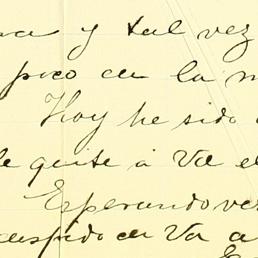 y tal vez
poco en la m
Hoy he sido
le quite á Vd el
Esperando ver
despido de Vd a